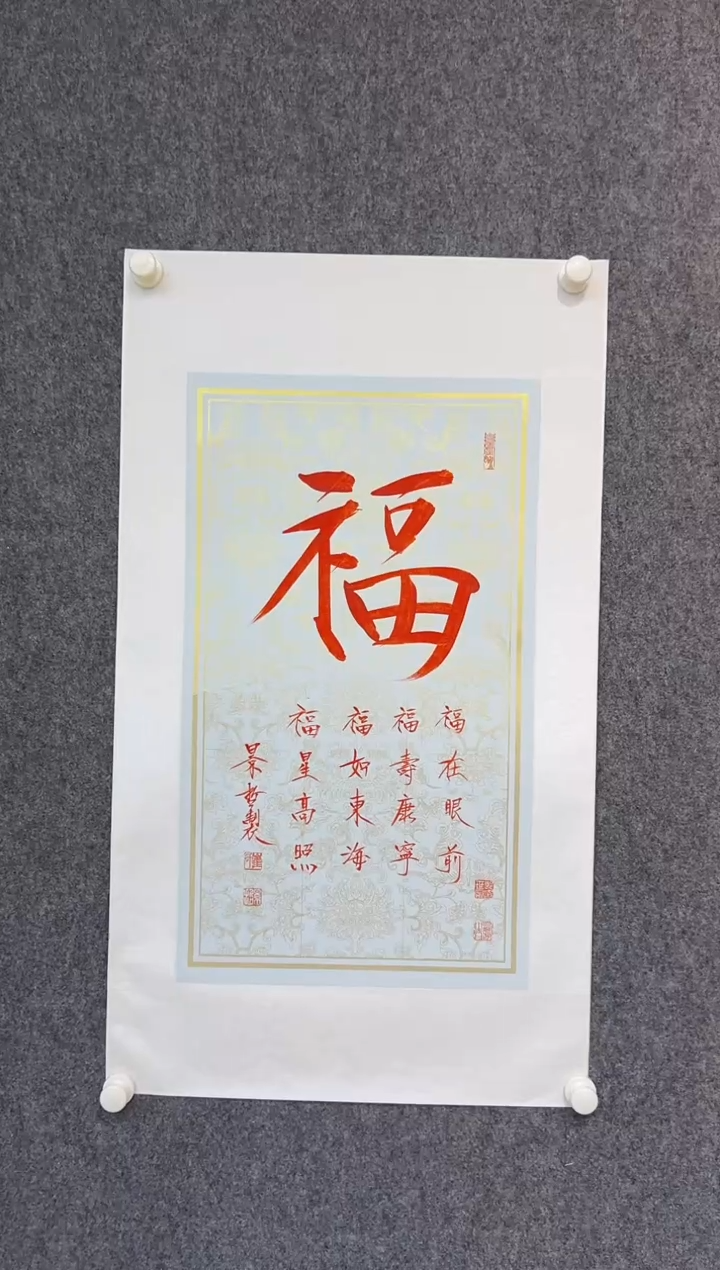 福
福在眼前
福壽康寧
福如東海
福星高照